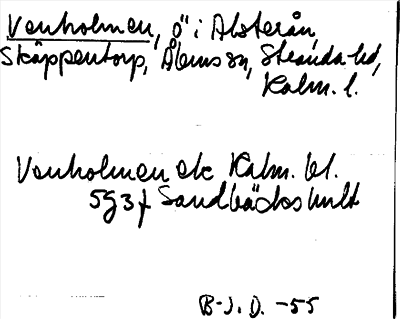 Venholmen, ö i Alsterån,
Skäppentorp, Ålems sn, Stranda hd,
Kalm. l.
Venholmen ek Kalm. bl.
5g3f Sandbäckshult
B-J.D. -55